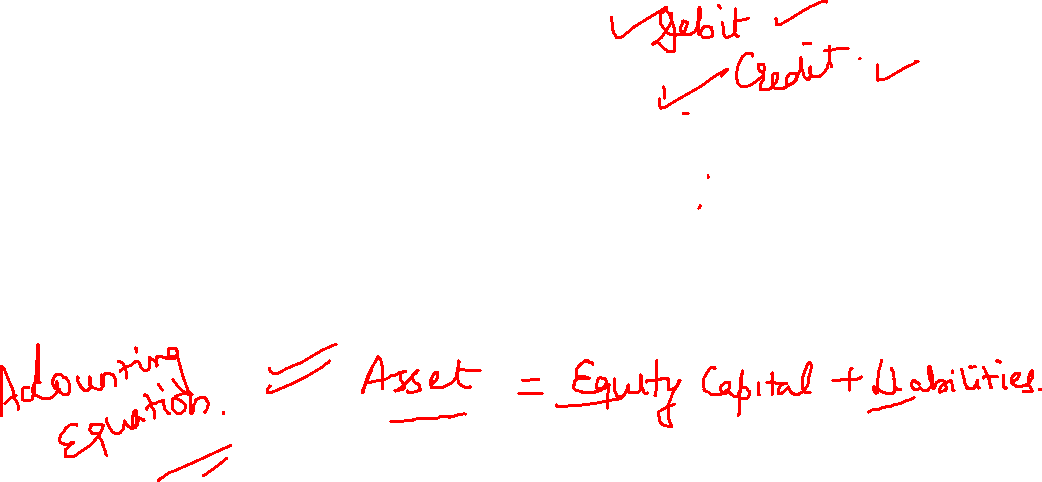 Debit
Credit.
Accounting
Equation.
Asset = Equity Capital + Liabilities.